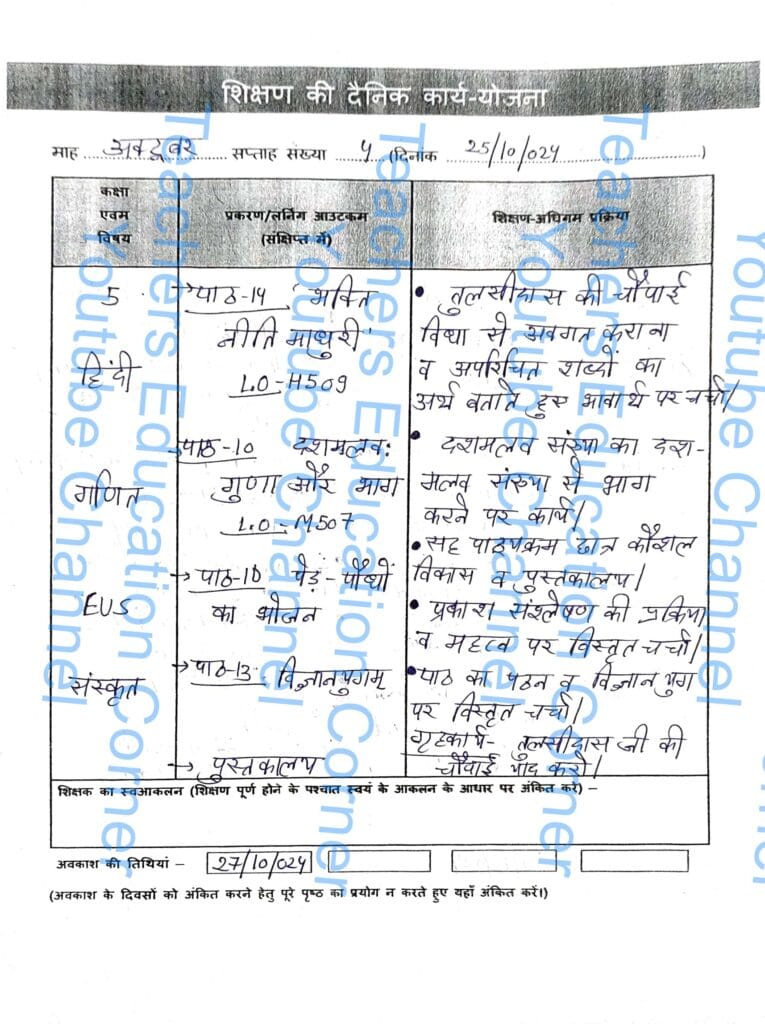 शिक्षण की दैनिक कार्य-योजना
माह अक्टूबर सप्ताह संख्या 4 (दिनांक 25/10/024)
कक्षा एवम विषय
प्रकरण/लर्निंग आउटकम (संक्षिप्त में)
शिक्षण-अधिगम प्रक्रिया
5
हिंदी
→ पाठ-14 'भक्ति
नीति माधुरी'
L.O-H509
• तुलसीदास की चौपाई
विधा से अवगत कराना
व अपरिचित शब्दों का
अर्थ बताते हुए भावार्थ पर चर्चा।
गणित
→ पाठ-10 दशमलव:
गुणा और भाग
L.O-M507
• दशमलव संख्या का दश-
मलव संख्या से भाग
करने पर कार्य।
• सह पाठ्यक्रम छात्र कौशल
विकास व पुस्तकालय।
EVS
→ पाठ-10 पेड़-पौधों
का भोजन
• प्रकाश संश्लेषण की प्रक्रिया
व महत्व पर विस्तृत चर्चा।
संस्कृत
→ पाठ-13 विज्ञानयुगम्
• पाठ का पठन व विज्ञान युग
पर विस्तृत चर्चा।
→ पुस्तकालय
गृहकार्य- तुलसीदास जी की
चौपाई याद करो।
शिक्षक का स्वआकलन (शिक्षण पूर्ण होने के पश्चात स्वयं के आकलन के आधार पर अंकित करें) –
अवकाश की तिथियां – 27/10/024
(अवकाश के दिवसों को अंकित करने हेतु पूरे पृष्ठ का प्रयोग न करते हुए यहाँ अंकित करें।)
Teachers Education Corner
Youtube Channel
Teachers Education Corner
Youtube Channel
Teachers Education Corner
Youtube Channel
Youtube Channel